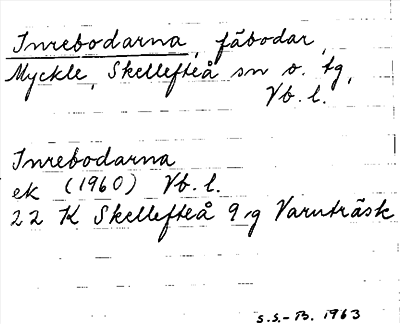 Inrebodarna, fäbodar,
Myckle, Skellefteå sn o. tg,
Vb. l.
Inrebodarna
ek (1960) Vb. l.
22 K Skellefteå 9 g Varuträsk
S.S.-B. 1963